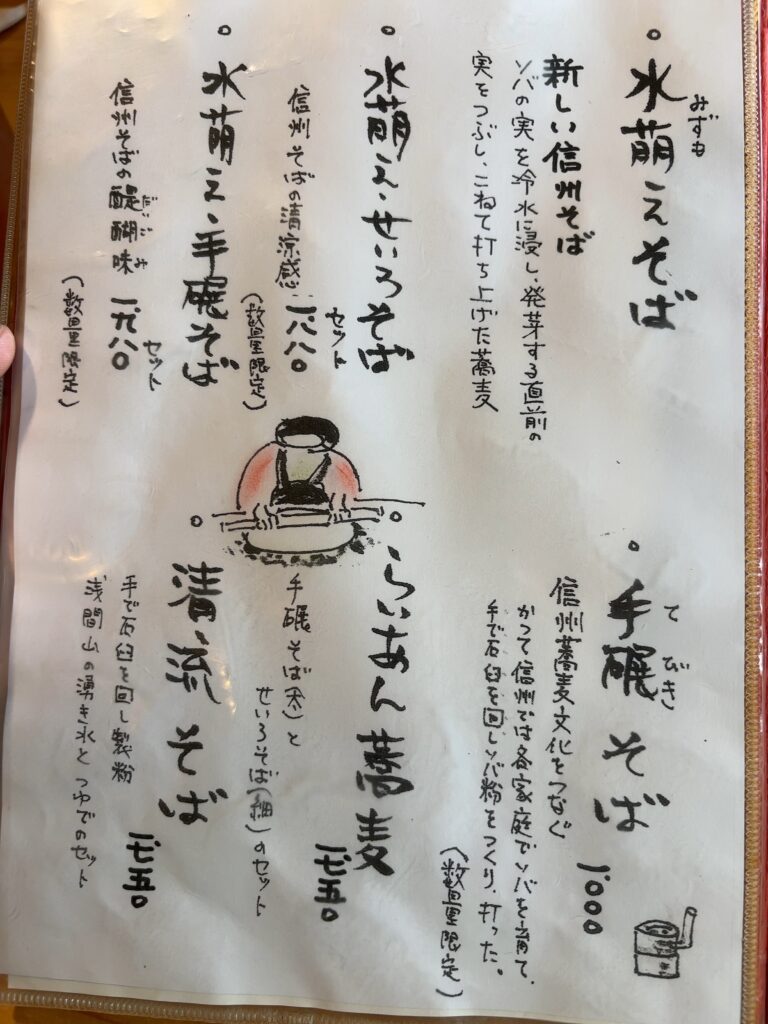 みずも
。水萌えそば
新しい信州そば
ソバの実を冷水に浸し、発芽する直前の
実をつぶし、こねて打ち上げた蕎麦
。水萌え・せいろそば
信州そばの清涼感 セット 一、八八〇
(数量限定)
。水萌え・手碾そば
だいごみ
信州そばの醍醐味 セット 一、九八〇
(数量限定)
てびき
。手碾そば
信州蕎麦文化をつなぐ 一、〇〇〇
かつて信州では各家庭でソバを育て、
手で石臼を回しソバ粉をつくり、打った。
(数量限定)
。らいあん蕎麦
手碾そば(太)と
せいろそば(細)のセット 一、七五〇
。清流そば
手で石臼を回し製粉
浅間山の湧き水とつゆでのセット 一、七五〇